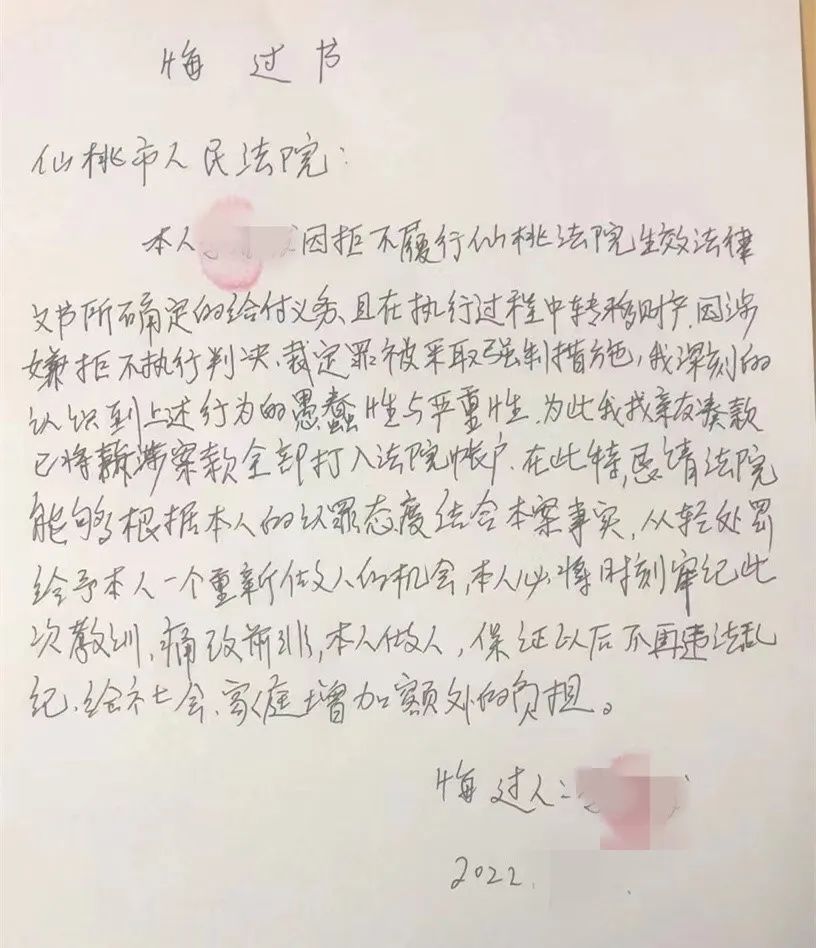 悔过书
仙桃市人民法院：
本人因拒不履行仙桃法院生效法律
文书所确定的给付义务、且在执行过程中转移财产，因涉
嫌拒不执行判决、裁定罪被采取强制措施，我深刻的
认识到上述行为的愚蠢性与严重性，为此我找亲友凑款
已将涉案款全部打入法院帐户，在此特恳请法院
能够根据本人的认罪态度结合本案事实，从轻处罚
给予本人一个重新做人的机会，本人必将时刻牢纪此
次教训，痛改前非，本人做人，保证以后不再违法乱
纪、给社会、家庭增加额外的负担。
悔过人：
2022.